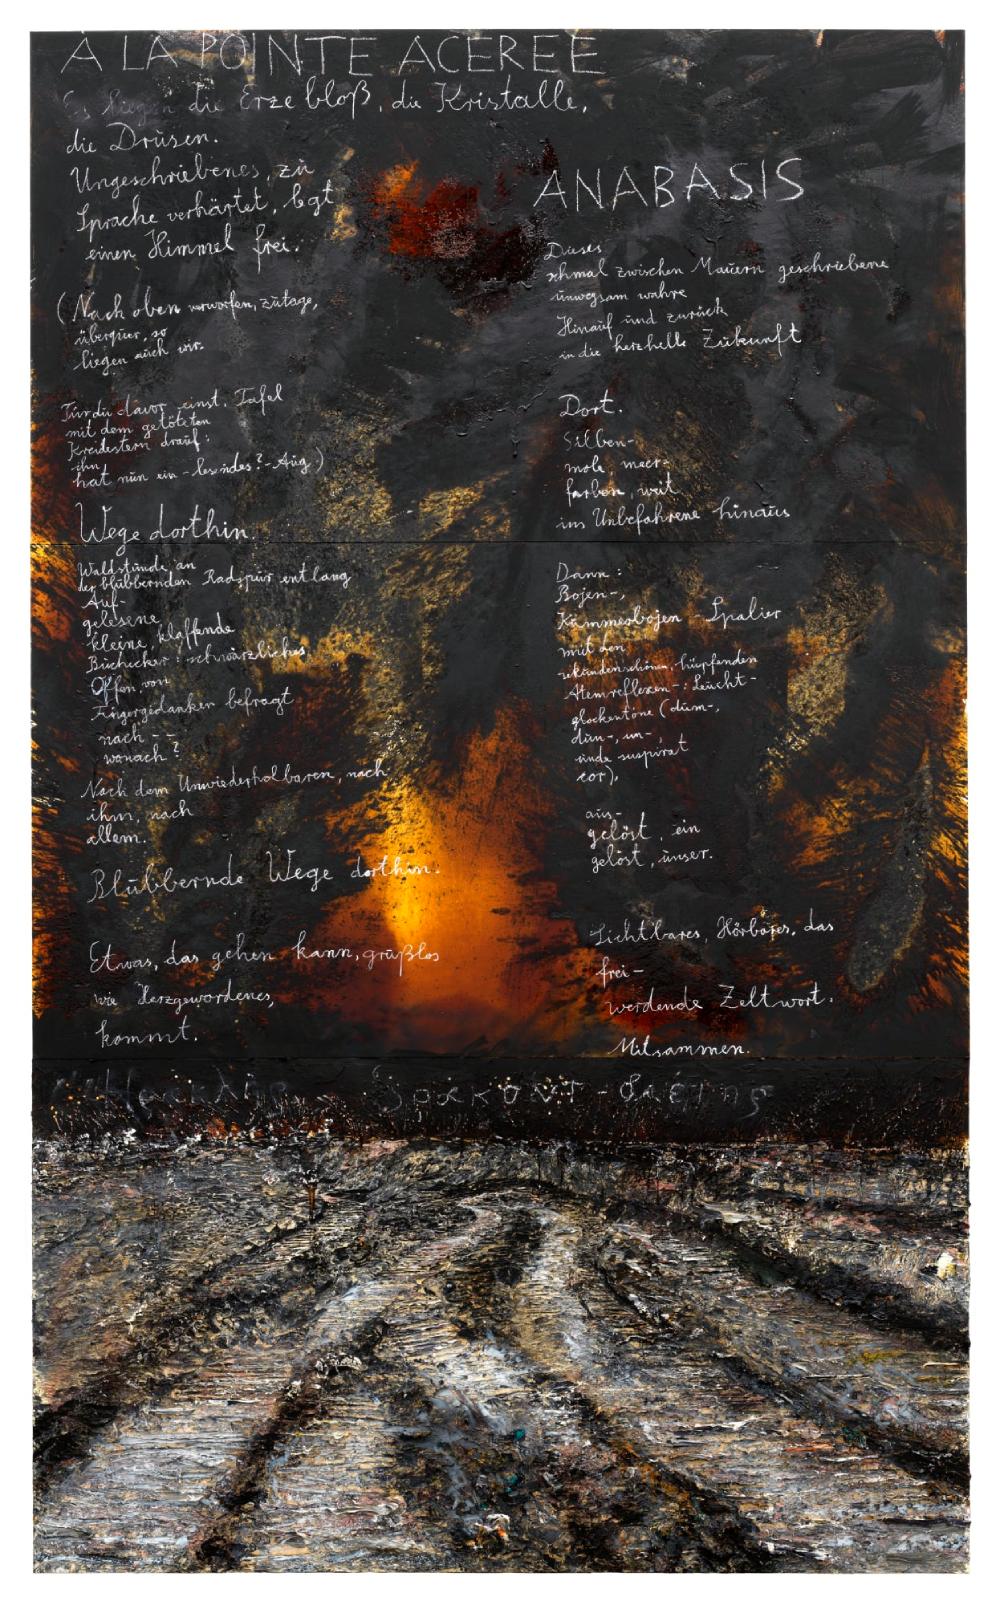 À LA POINTE ACEREE
Es liegen die Erze bloß, die Kristalle,
die Drusen.
Ungeschriebenes, zu
Sprache verhärtet, legt
einen Himmel frei.
(Nach oben verworfen, zutage,
überquer, so
liegen auch wir.
Tür du davor einst, Tafel
mit dem getöteten
Kreidestern drauf:
ihn
hat nun ein - lesendes? - Aug.)
Wege dorthin.
Waldstunde an
der blubbernden Radspur entlang
Auf-
gelesene
kleine, klaffende
Buchecker: schwärzliches
Offen von
Fingergedanken befragt
nach --
wonach?
Nach dem Unwiederholbaren, nach
ihm, nach
allem.
Blubbernde Wege dorthin.
Etwas, das gehen kann, grußlos
wie Herzgewordenes,
kommt.
ANABASIS
Dieses
schmal zwischen Mauern geschriebene
unwegsam wahre
Hinauf und zurück
in die herzhelle Zukunft
Dort.
Silben-
mole, meer-
farben, weit
ins Unbefahrene hinaus
Dann:
Bojen-,
Kummerbojen-Spalier
mit den
sekundenschönen, hüpfenden
Atemreflexen-: Leucht-
glockentöne (dum-,
dun-, un-,
unde suspirat
cor),
aus-
gelöst, ein
gelöst, unser.
Sichtbares, Hörbares, das
frei-
werdende Zeltwort.
Mitsammen.